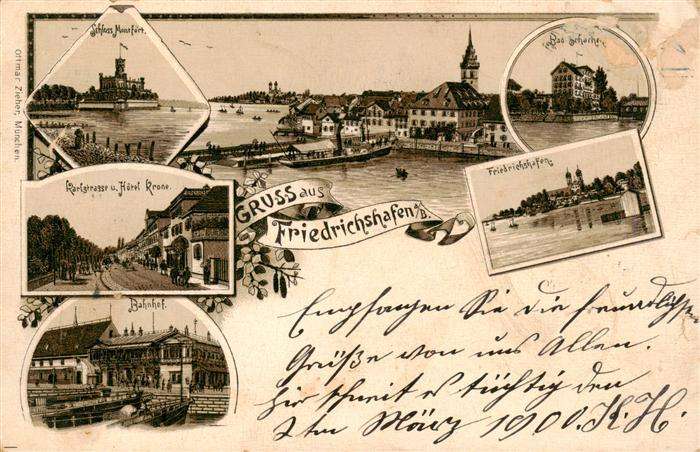 Schloss Montfort.
Bad Schachen.
Ottmar Zieher, München.
Karlstrasse u. Hôtel Krone.
GRUSS aus
Friedrichshafen a/B.
Friedrichshafen.
Bahnhof.
Empfangen Sie die freundlichsten
Grüße von uns Allen.
hier schneit es tüchtig den
2ten März 1900. K. H.